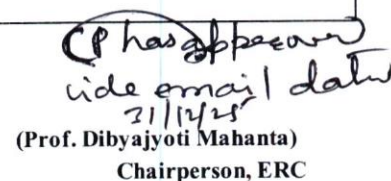 CP has approved
vide email dated
31/12/25
(Prof. Dibyajyoti Mahanta)
Chairperson, ERC